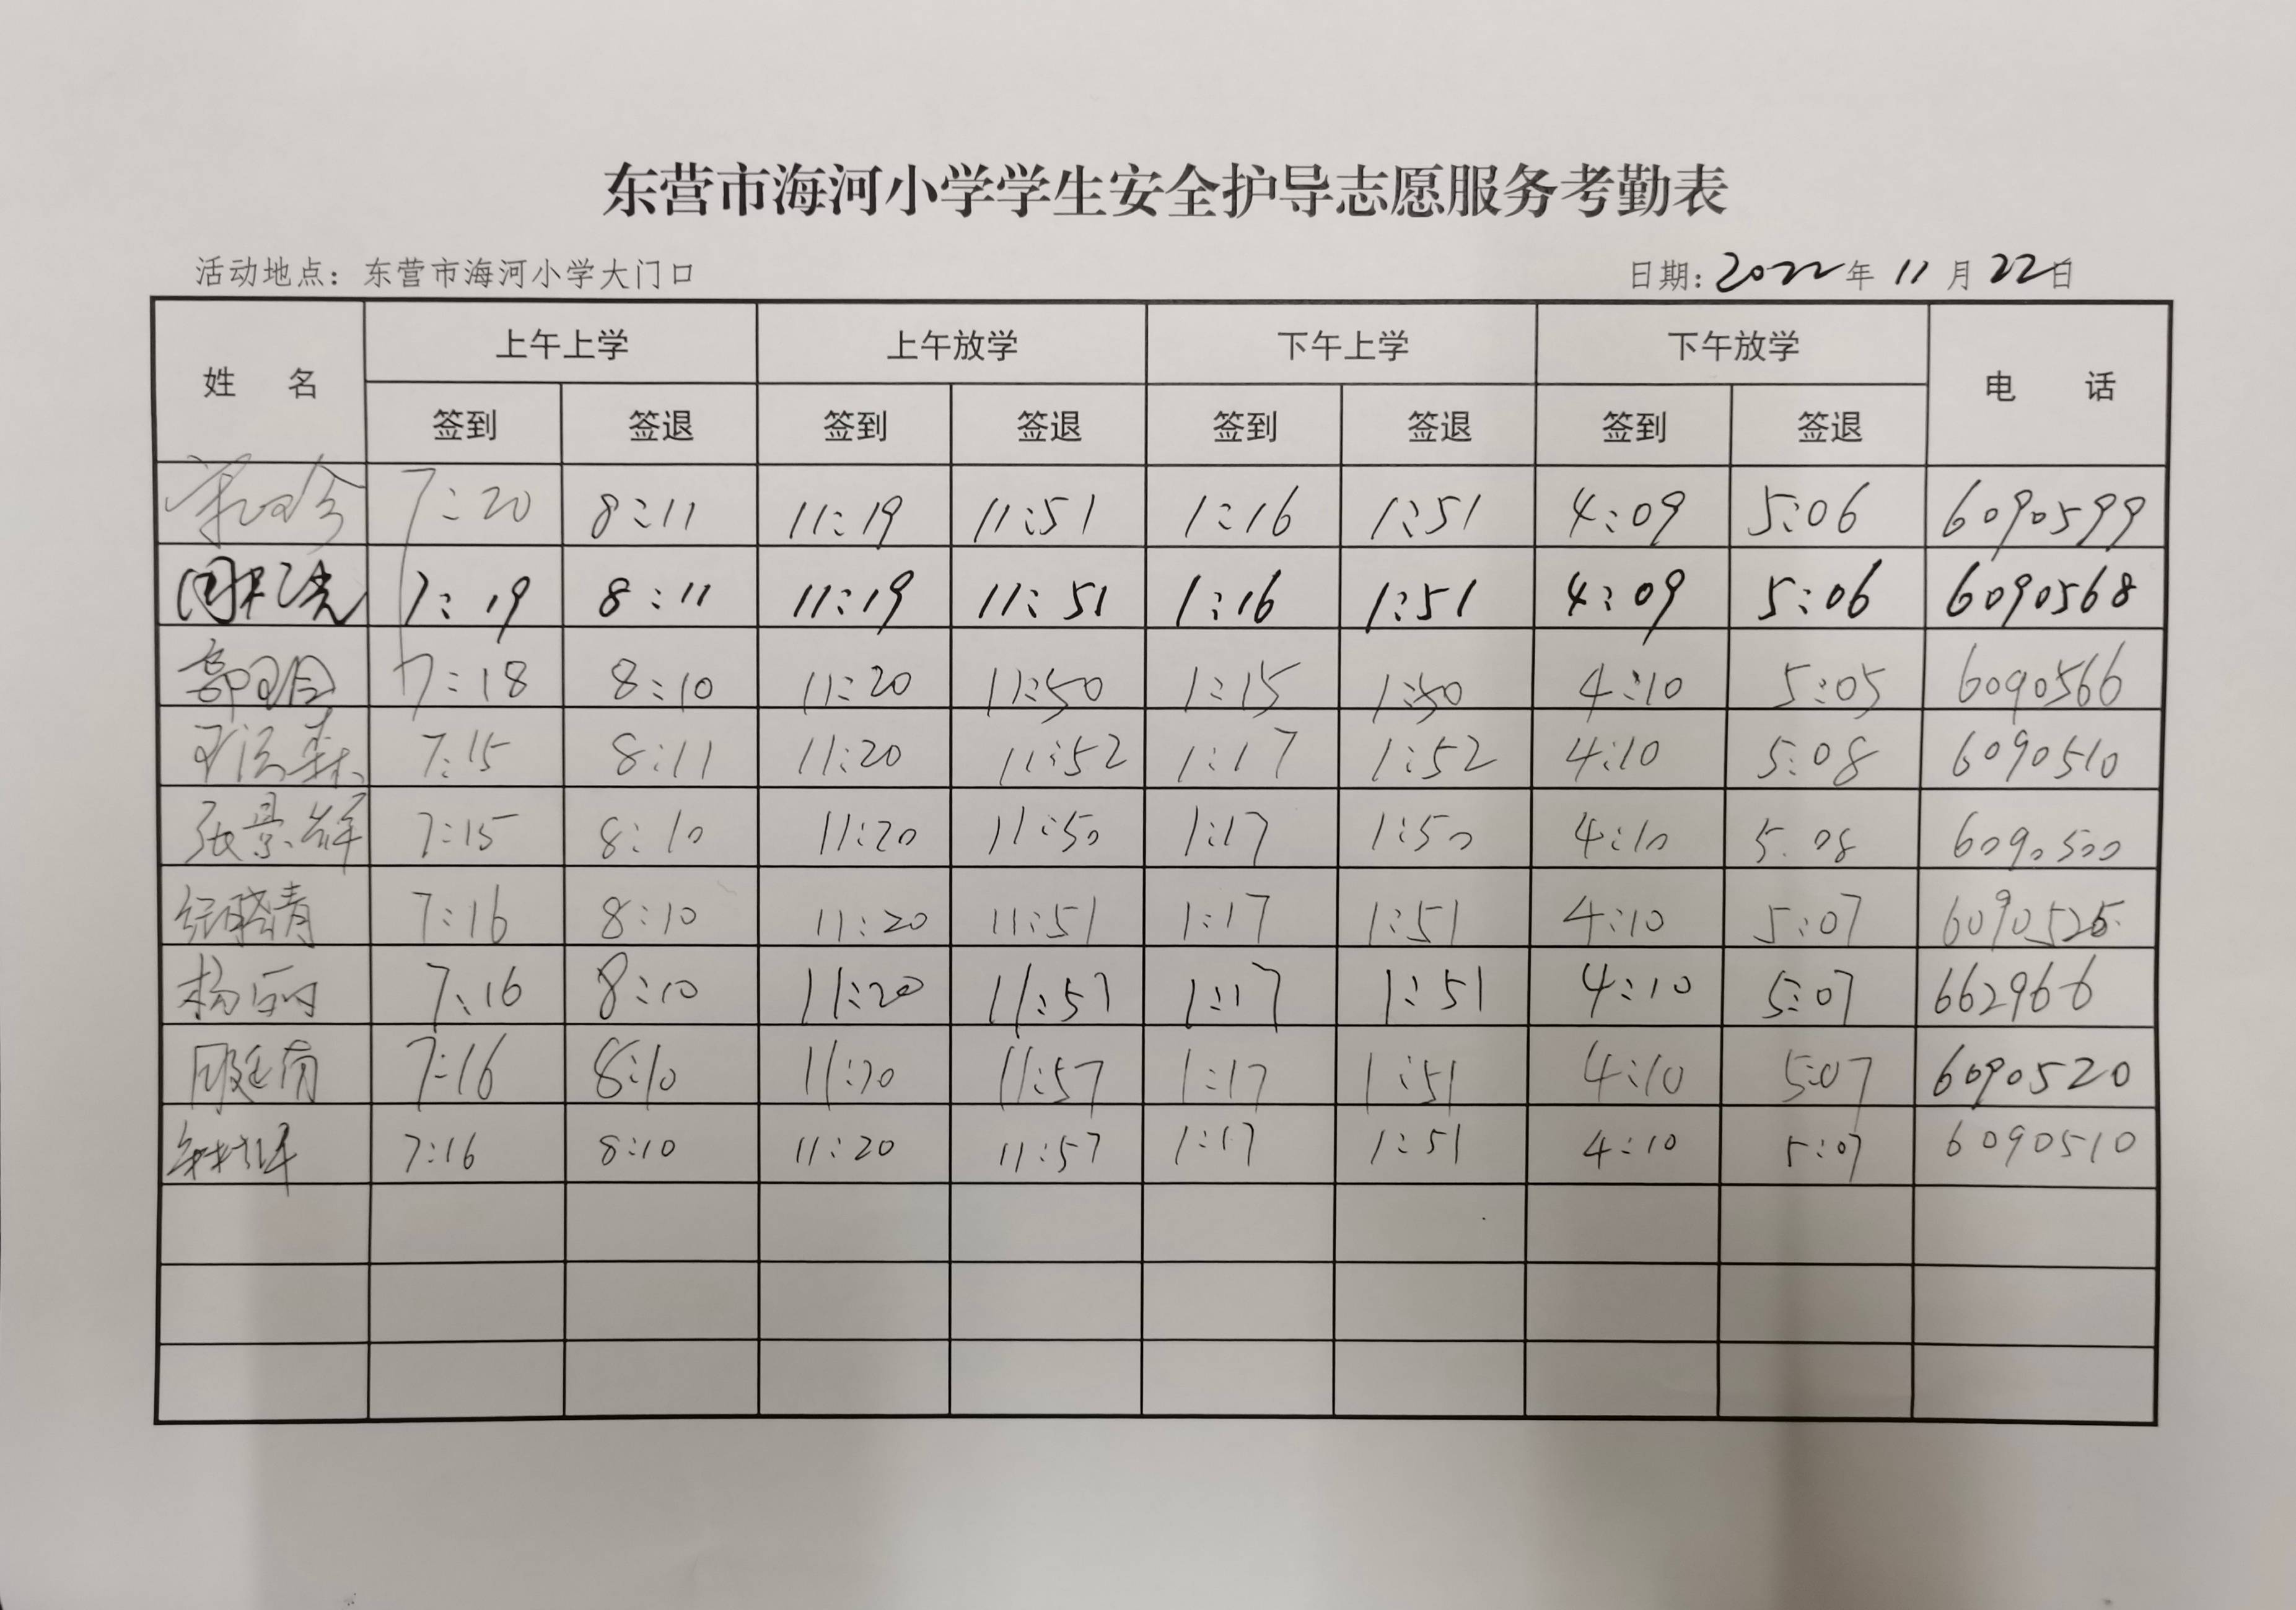 东营市海河小学学生安全护导志愿服务考勤表
活动地点：东营市海河小学大门口 日期：2022年11月22日
姓 名 上午上学 上午放学 下午上学 下午放学 电 话
签到 签退 签到 签退 签到 签退 签到 签退
7:20 8:11 11:19 11:51 1:16 1:51 4:09 5:06 6090599
7:19 8:11 11:19 11:51 1:16 1:51 4:09 5:06 6090568
7:18 8:10 11:20 11:50 1:15 1:50 4:10 5:05 6090566
7:15 8:11 11:20 11:52 1:17 1:52 4:10 5:08 6090510
张景群 7:15 8:10 11:20 11:50 1:17 1:50 4:10 5:08 6090500
7:16 8:10 11:20 11:51 1:17 1:51 4:10 5:07
杨丽 7:16 8:10 11:20 11:57 1:17 1:51 4:10 5:07 662966
7:16 8:10 11:20 11:57 1:17 1:51 4:10 5:07 6090520
7:16 8:10 11:20 11:57 1:17 1:51 4:10 5:07 6090510